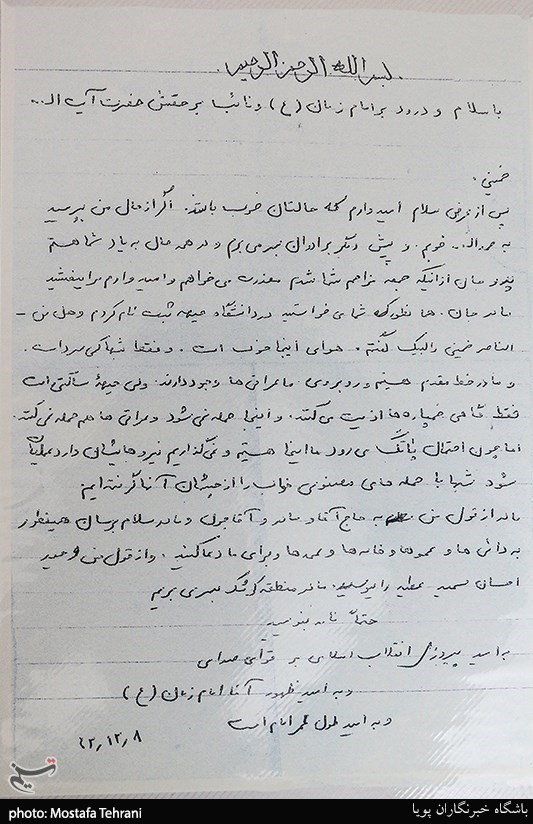 بسم الله الرحمن الرحیم
با سلام و درود بر امام زمان (ع) و نائب بر حقش حضرت آیت ا...
خمینی.
پس از عرض سلام امیدوارم که حالتان خوب باشد. اگر از حال من بپرسید
به حمدا... خوبم. و پیش دیگر برادران بسر می برم و در همه حال به یاد شما هستم
از اینکه جمعه مزاحم شما شدم معذرت می خواهم و امیدوارم مرا ببخشید
مادر جان. همانطور که شما می خواستید در دانشگاه جبهه ثبت نام کردم و هل من -
الناصر خمینی را لبیک گفتم. هوای اینجا خوب است. و فقط شبها کمی سرد است.
و ما در خط مقدم هستیم و روبروی ما عراقی ها وجود دارند. ولی جبههٔ ساکتی است
فقط گاهی خمپاره ها اذیت می کنند. و اینجا حمله نمی شود و عراقی ها هم حمله نمی کنند.
اما چون احتمال پاتک می رود ما اینجا هستیم و نمی گذاریم نیروهایشان وارد عملیات
شود شبها با حمله های مصنوعی خواب را از چشمان آنها گرفته ایم
مادر از قول من به حاج آقا و مادر و آقاجون و مادر سلام برسان همینطور
به دائی ها و عموها و خاله ها و عمه ها و برای ما دعا کنید. و از قول من وحید
احسان سعید عطیه را ببوسید. ما در منطقه کوشک بسر می بریم
حتماً نامه بنویسید
به امید پیروزی انقلاب اسلامی بر قوای صدامی
و به امید ظهور آقا امام زمان (ع)
و به امید طول عمر امام امت
۶۲٫۱۲٫۸
تسنیم
photo: Mostafa Tehrani
باشگاه خبرنگاران پویا